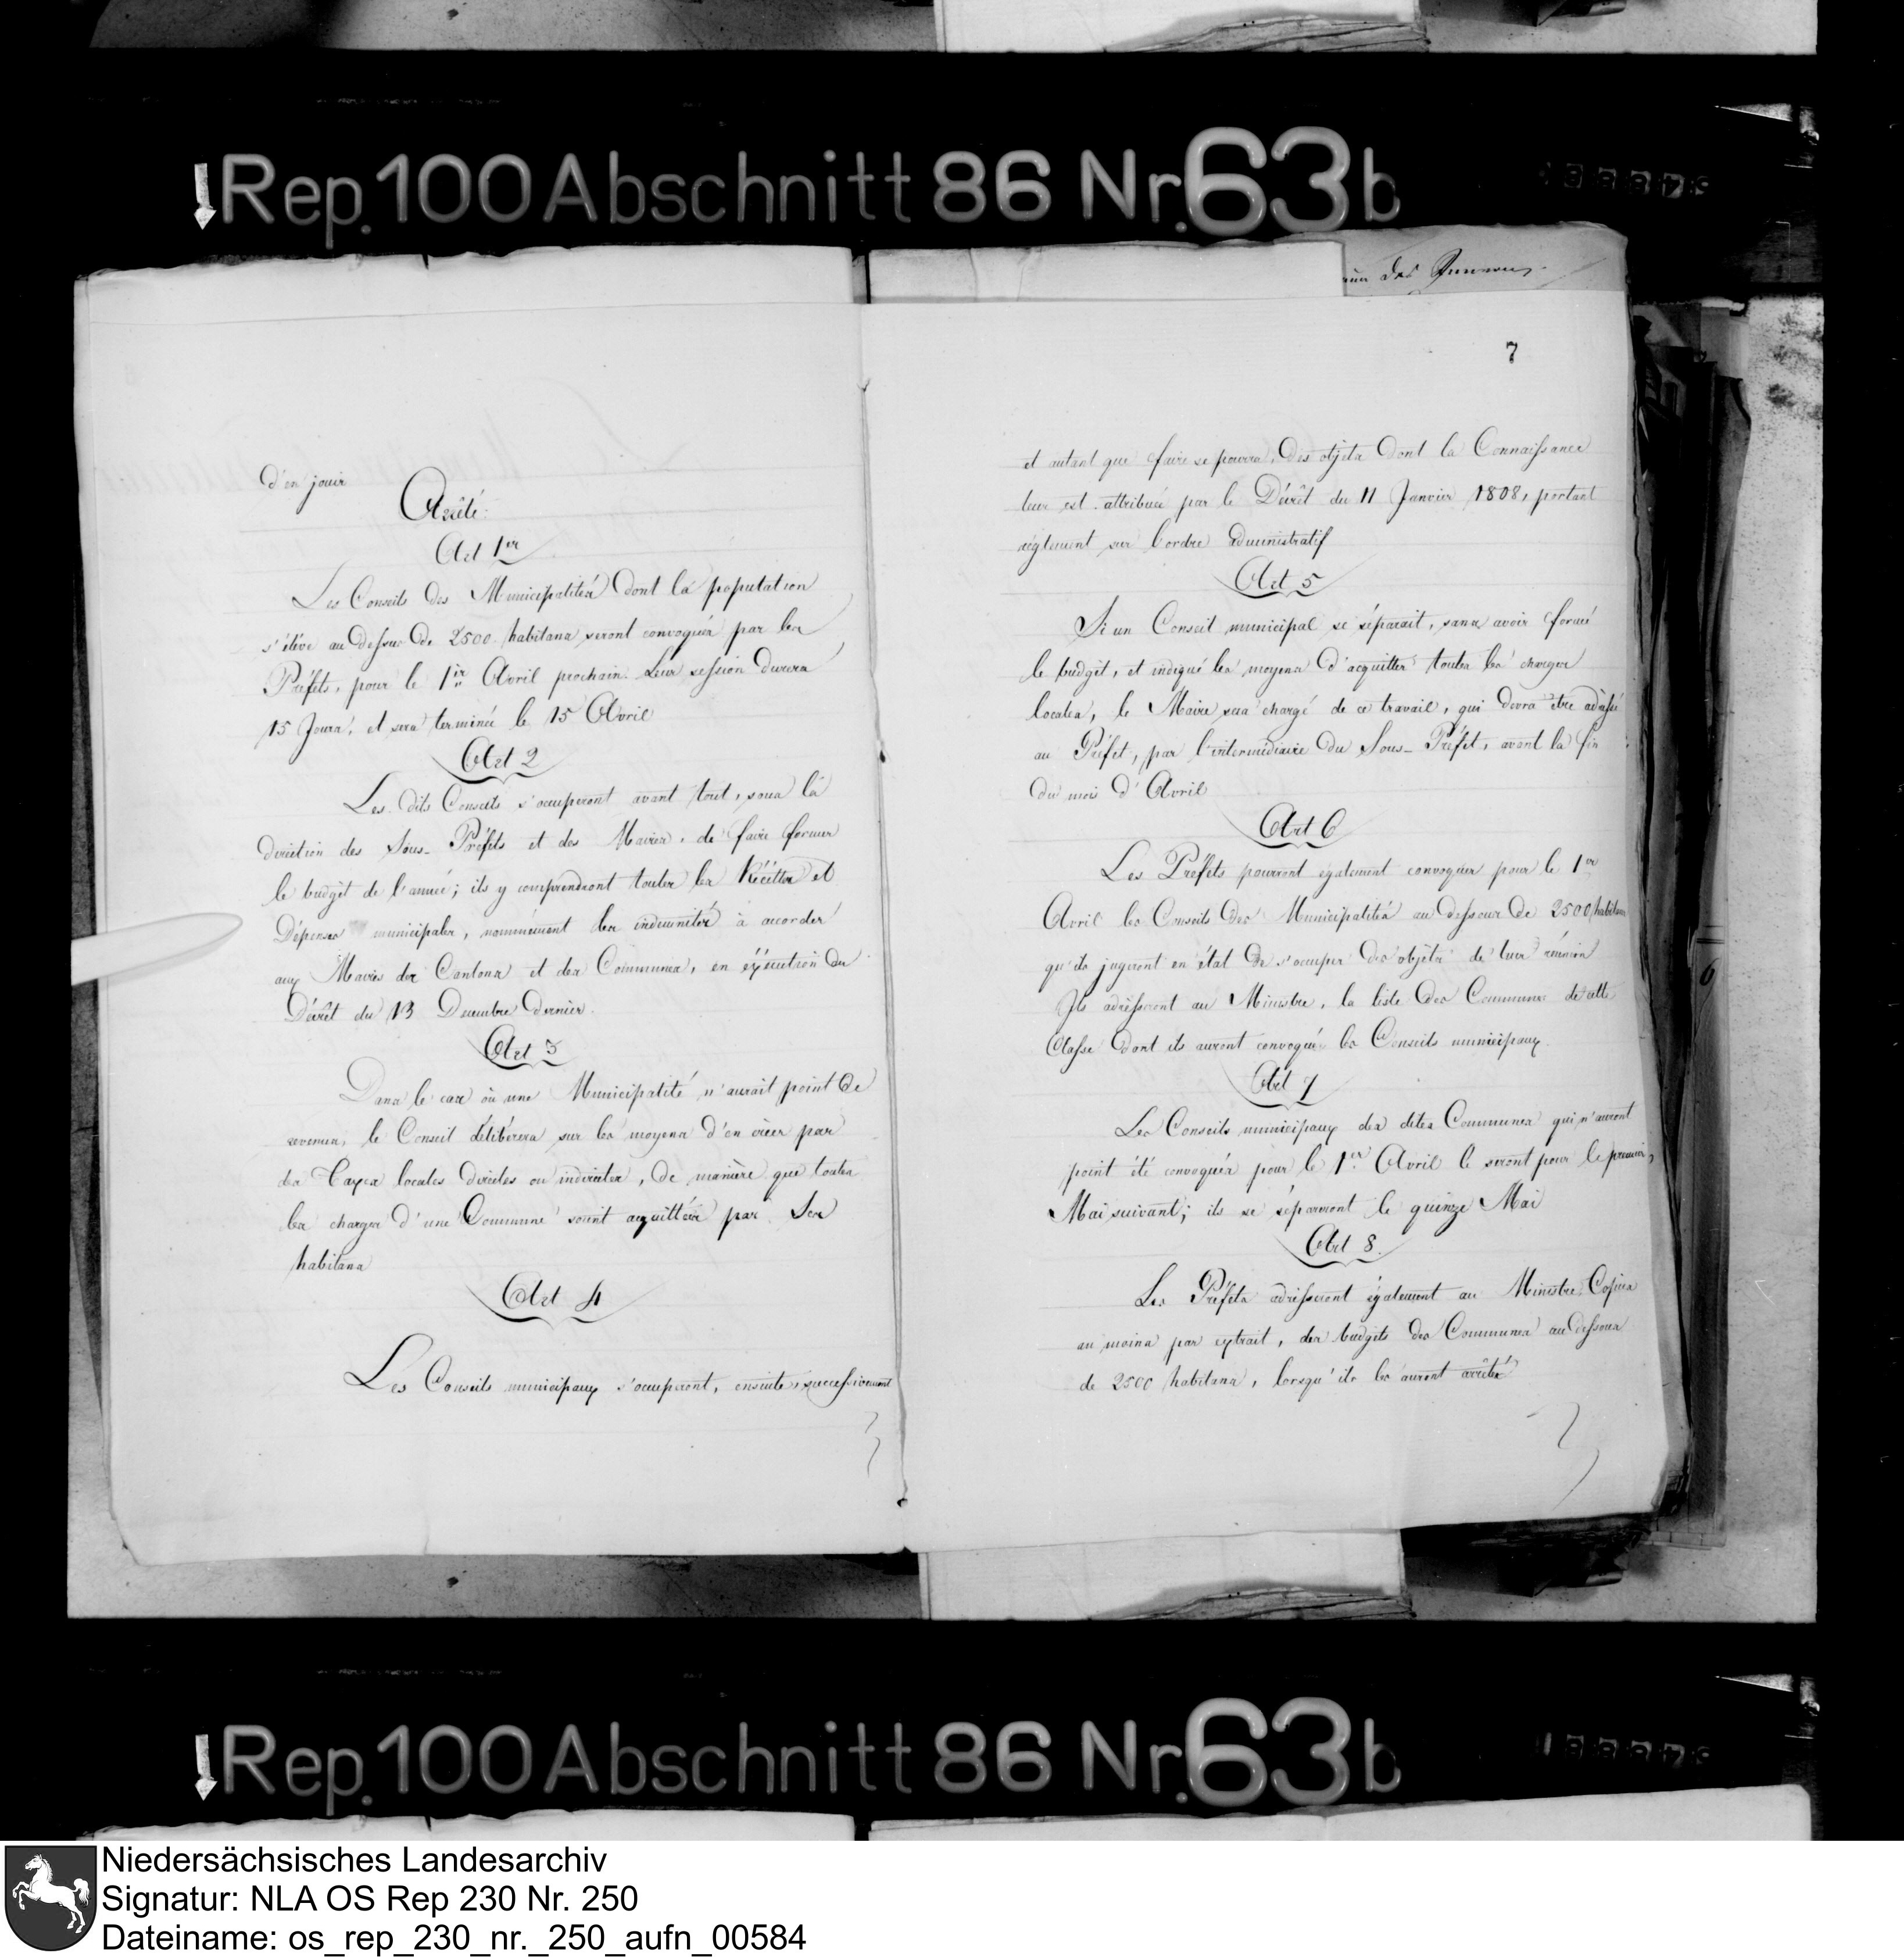 Rep. 100 Abschnitt 86 Nr. 63b
des
7
d'en jouir
Arrêté
Art 1er
Les Conseils des Municipalités dont la population
s'élève au dessus de 2500 habitans seront convoqués par les
Préfets, pour le 1er Avril prochain. Leur session durera
15 Jours, et sera terminée le 15 Avril
Art 2
Les dits Conseils s'occuperont avant tout, sous la
direction des Sous-Préfets et des Maires, de faire former
le budgêt de l'année; ils y comprendront toutes les Récettes et
Dépenses municipales, nommément les indemnités à accorder
aux Maires des Cantons et des Communes, en éxécution du
Décrêt du 13 Decembre dernier.
Art 3
Dans le cas où une Municipalité n'aurait point de
revenus, le Conseil délibérera sur les moyens d'en créer par
des Taxes locales directes ou indirectes, de manière que toutes
les charges d'une Commune soient acquittées par Ses
habitans
Art 4
Les Conseils municipaux s'occuperont, ensuite, successivement
et autant que faire se pourra, des objets dont la Connaissance
leur est attribuée par le Décrêt du 11 Janvier 1808, portant
réglement sur l'ordre administratif
Art 5
Si un Conseil municipal se séparait, sans avoir formé
le budgêt, et indiqué les moyens d'acquitter toutes les charges
locales, le Maire sera chargé de ce travail, qui devra être adressé
au Préfet, par l'intermédiaire du Sous-Préfet, avant la fin
du mois d'Avril
Art 6
Les Préfets pourront également convoquer pour le 1er
Avril les Conseils des Municipalités au dessous de 2500 habitans
qu'ils jugeront en état de s'occuper des objêts de leur réunion
Ils adresseront au Ministre, la liste des Communes de cette
Classe dont ils auront convoqué les Conseils municipaux.
Art 7
Les Conseils municipaux des dites Communes qui n'auront
point été convoqués pour le 1er Avril le seront pour le premier
Mai suivant; ils se sépareront le quinze Mai
Art 8.
Les Préfets adresseront également au Ministre, Copies
au moins par extrait, des budgêts des Communes au dessous
de 2500 habitans, lorsqu'ils les auront arrêtés
6
Rep. 100 Abschnitt 86 Nr. 63b
Niedersächsisches Landesarchiv
Signatur: NLA OS Rep 230 Nr. 250
Dateiname: os_rep_230_nr._250_aufn_00584